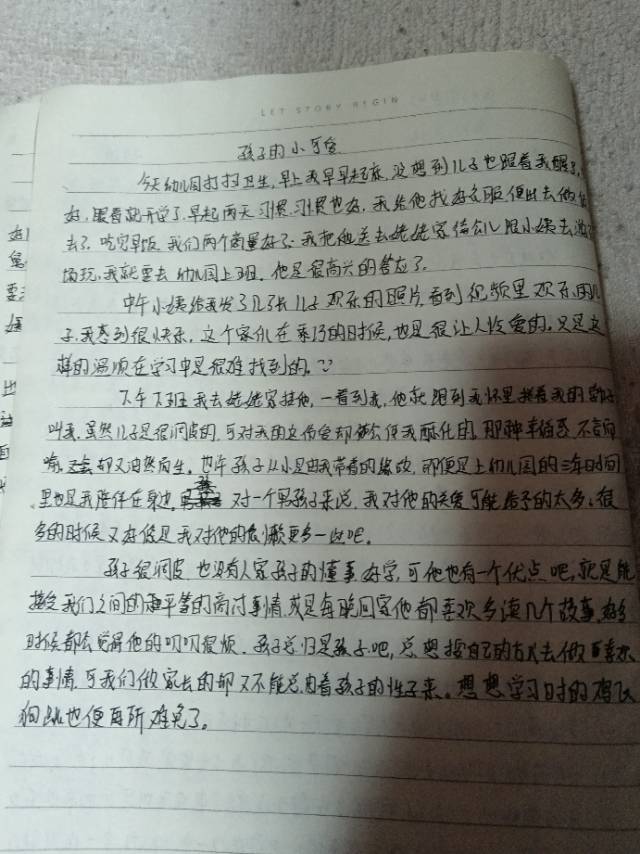 LET STORY BEGIN
孩子的小可爱
今天幼儿园打扫卫生,早上我早早起床,没想到儿子也跟着我醒了,
好,眼看就开学了,早起两天习惯习惯也好,我给他找好衣服便出去做饭
去了。吃完早饭,我们两个商量好了:我把他送去姥姥家待会儿跟小姨去游
场玩,我就要去幼儿园上班。他是很高兴的答应了。
中午小姨给我发了几张儿子欢乐的照片,看到视频里欢乐的儿
子,我感到很快乐,这个家伙在乖巧的时候,也是很让人怜爱的。只是这
样的温顺在学习中是很难找到的。
下午下班我去姥姥家接他,一看到我,他就跑到我怀里搂着我的脖子
叫我,虽然儿子是很调皮的,可对我的这份爱却够使我融化的,那种幸福感不言而
喻,却又油然而生。也许孩子从小是由我带着的缘故,即便是上幼儿园的三年时间
里也是我陪伴在身边,对一个男孩子来说,我对他的关爱可能给予的太多;很
多的时候又好像是我对他的依懒更多一些吧。
孩子很调皮,也没有人家孩子的懂事好学,可他也有一个优点吧,就是能
接受我们之间的平等的商讨事情,或是每晚回家他都喜欢多读几个故事,好多
时候都会觉得他的叨叨很烦。孩子总归是孩子吧,总想按自己的方式去做喜欢
的事情,可我们做家长的却又不能总由着孩子的性子来。想想学习时的鸡飞
狗跳也便再所难免了。